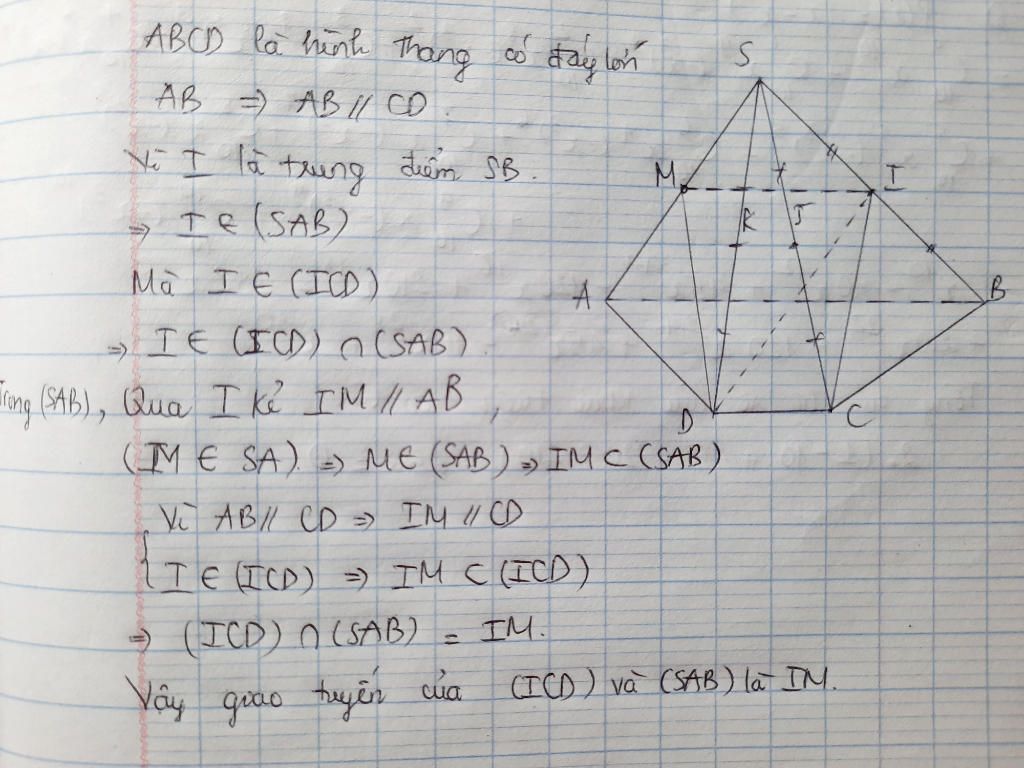 ABCD là hình thang có đáy lớn
AB => AB // CD.
Vì I là trung điểm SB.
=> I ∈ (SAB)
Mà I ∈ (ICD)
=> I ∈ (ICD) ∩ (SAB).
Trong (SAB), Qua I kẻ IM // AB,
(IM ∈ SA). => M ∈ (SAB) => IM ⊂ (SAB)
Vì AB // CD => IM // CD
{ I ∈ (ICD) => IM ⊂ (ICD)
=> (ICD) ∩ (SAB) = IM.
Vậy giao tuyến của (ICD) và (SAB) là IM.
S
M
I
K
J
A
B
D
C